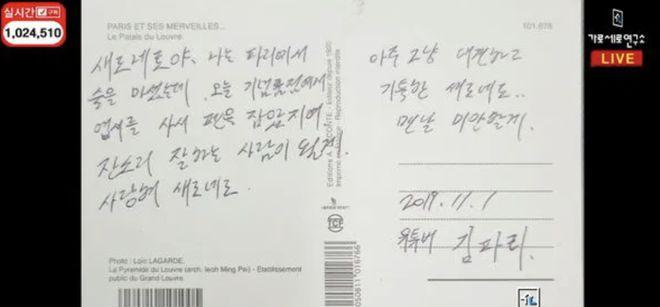 실시간 구독
1,024,510
가로세로연구소
LIVE
PARIS ET SES MERVEILLES...
Le Palais du Louvre
101.678
새로네로야, 나는 파리에서
술을 마셨는데 오늘 기념품점에서
엽서를 사서 펜을 잡았지여
잔소리 잘하는 사람이
사랑해 새로네로.
아주 그냥 대견하고
기특한 새로네로..
맨날 미안할게.
2019. 11. 1
유튜버 김파리.
Editions A. LECONTE - Editeur depuis 1920
Imprimé Reproduction interdite
Photo : Loïc LAGARDE.
La Pyramide du Louvre (arch. Ieoh Ming Pei) - Etablissement
public du Grand Louvre.